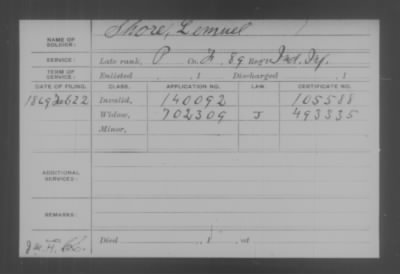 NAME OF SOLDIER: Shore, Lemuel
SERVICE: Late rank, P Co. F, 89 Reg't Ind. Inf.
TERM OF SERVICE: Enlisted , 1 Discharged , 1
DATE OF FILING. CLASS. APPLICATION NO. LAW. CERTIFICATE NO.
1869 Feb 22 Invalid, 140092 105588
Widow, 702309 J 493335
Minor,
ADDITIONAL SERVICES:
REMARKS:
Died , 1 , at